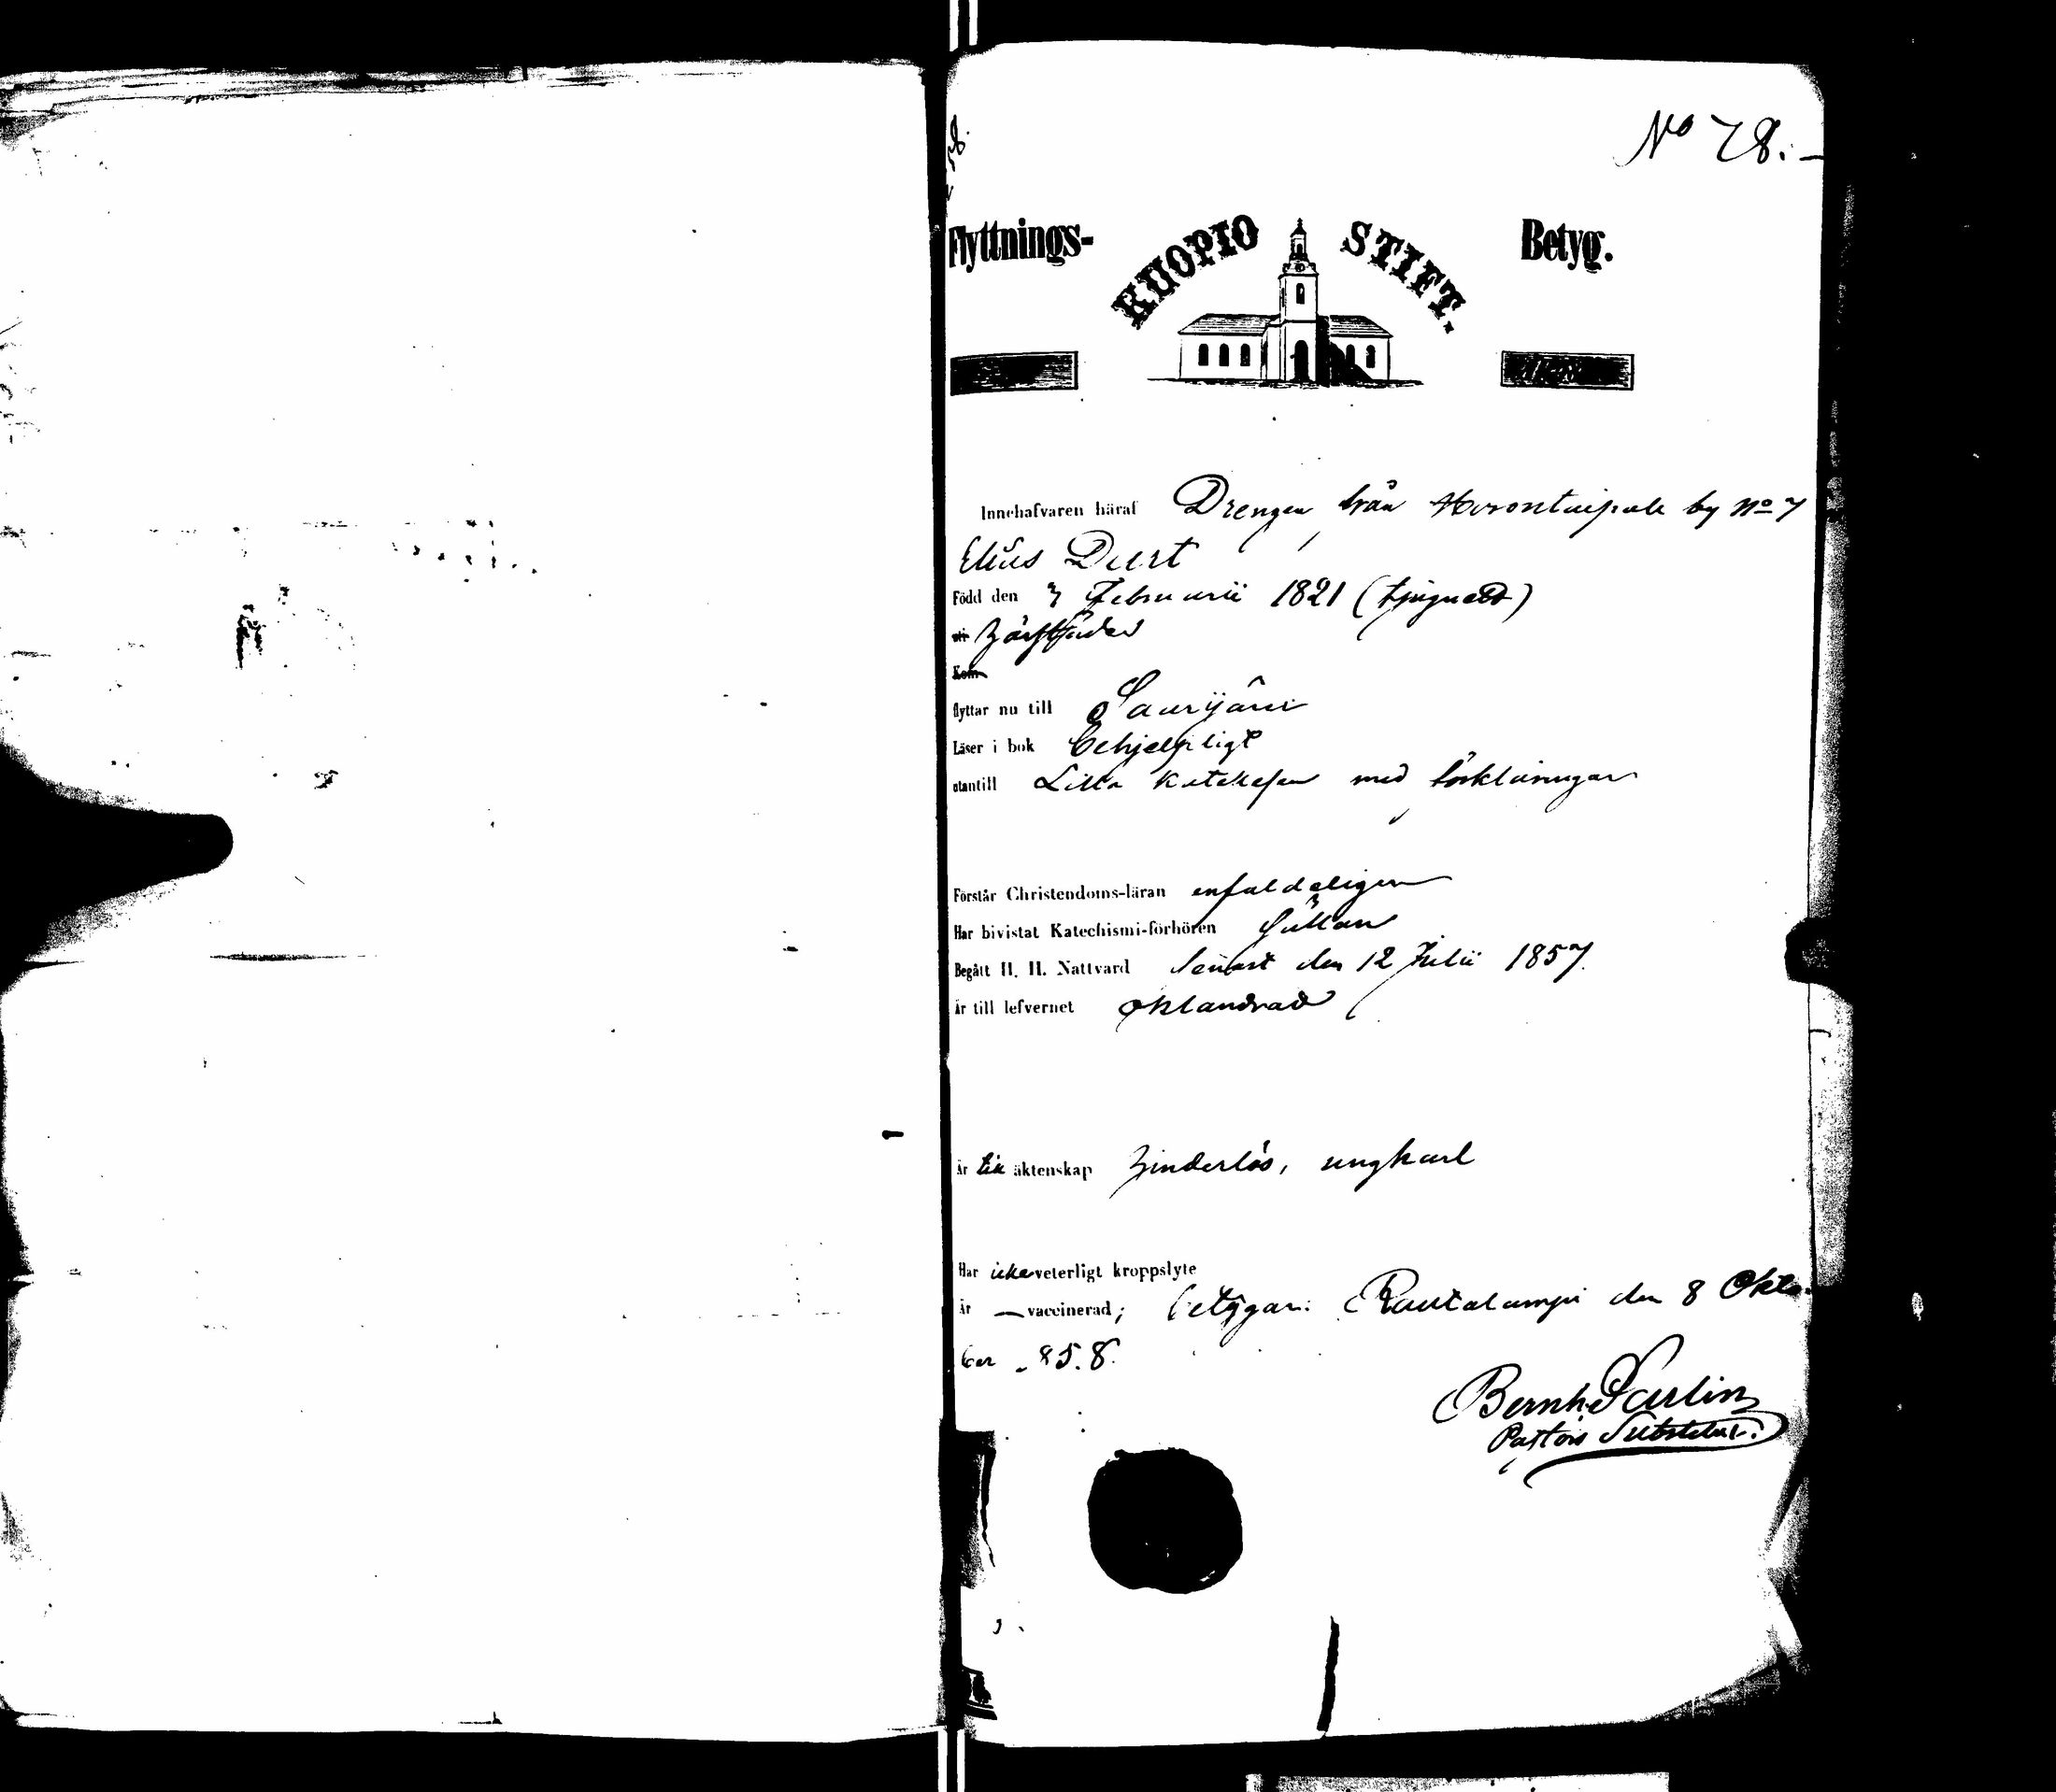 58.
No 78.
Flyttnings- KUOPIO STIFT. Betyg.
Innehafvaren häraf Drengen från by No 7
Elias Durt
Född den 7 Februarii 1821 (tjuguett)
Kom
flyttar nu till Saarijärvi
Läser i bok behjelpligt
utantill Lilla Katekesen med förklaringar
Förstår Christendoms-läran enfaldeligen
Har bivistat Katechismi-förhören sällan
Begått H. H. Nattvard senast den 12 Julii 1857.
Är till lefvernet oklandrad
Är till äktenskap hinderlös, ungkarl
Har icke veterligt kroppslyte
Är — vaccinerad; betygar: Rautalampi den 8 Okto-
ber 1858.
Bernh. Sarlin
Pastors Substitut.